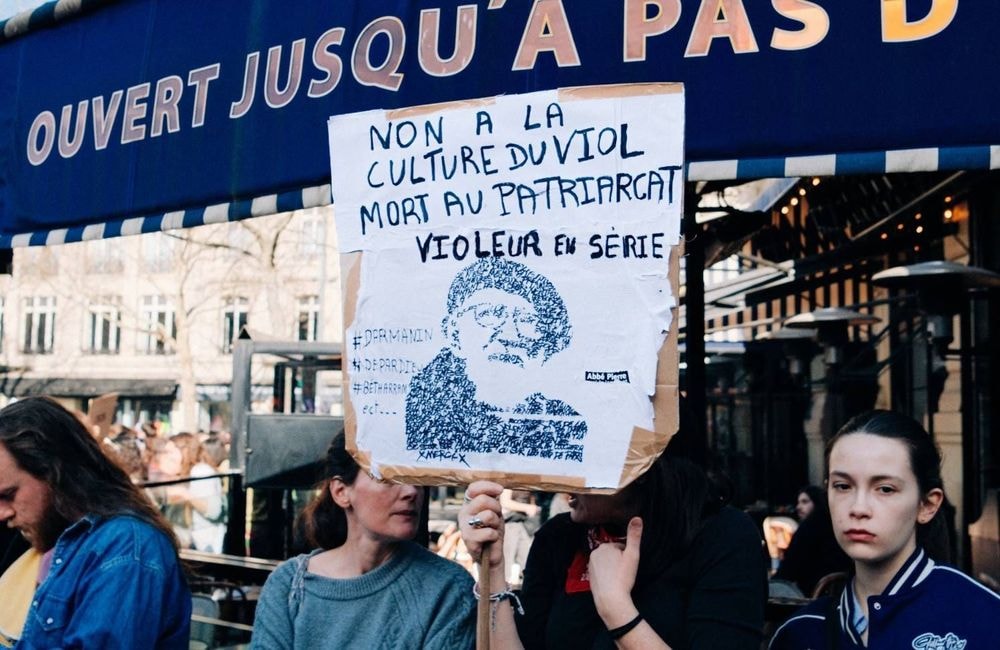 OUVERT JUSQU'À PAS D
NON A LA
CULTURE DU VIOL
MORT AU PATRIARCAT
VIOLEUR EN SÉRIE
#DARMANIN
#DEPARDIE
#BETHARRAM
ect...
Abbé Pierre
XMERCX